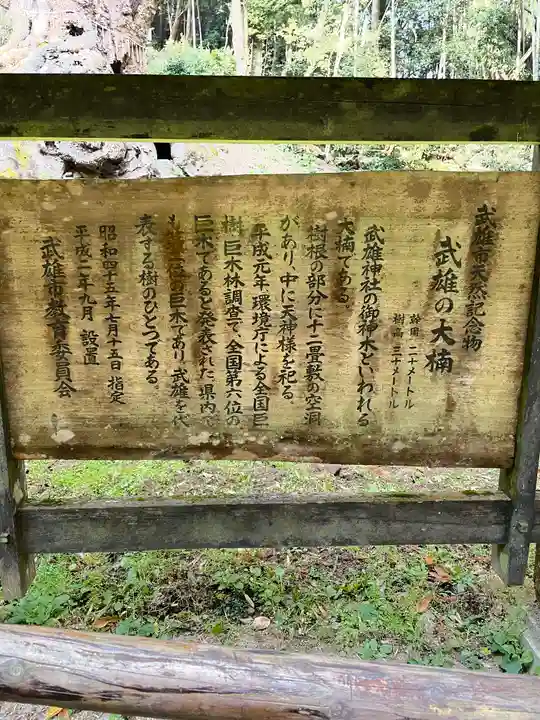 武雄市天然記念物
武雄の大楠
幹周 二十メートル
樹高 三十メートル
武雄神社の御神木といわれる
大楠である。
樹根の部分に十二畳敷の空洞
があり、中に天神様を祀る。
平成元年環境庁による全国巨
樹巨木林調査で、全国第六位の
巨木であると発表された。県内で
も 位の巨木であり、武雄を代
表する樹のひとつである。
昭和四十五年七月十五日 指定
平成二年九月 設置
武雄市教育委員会